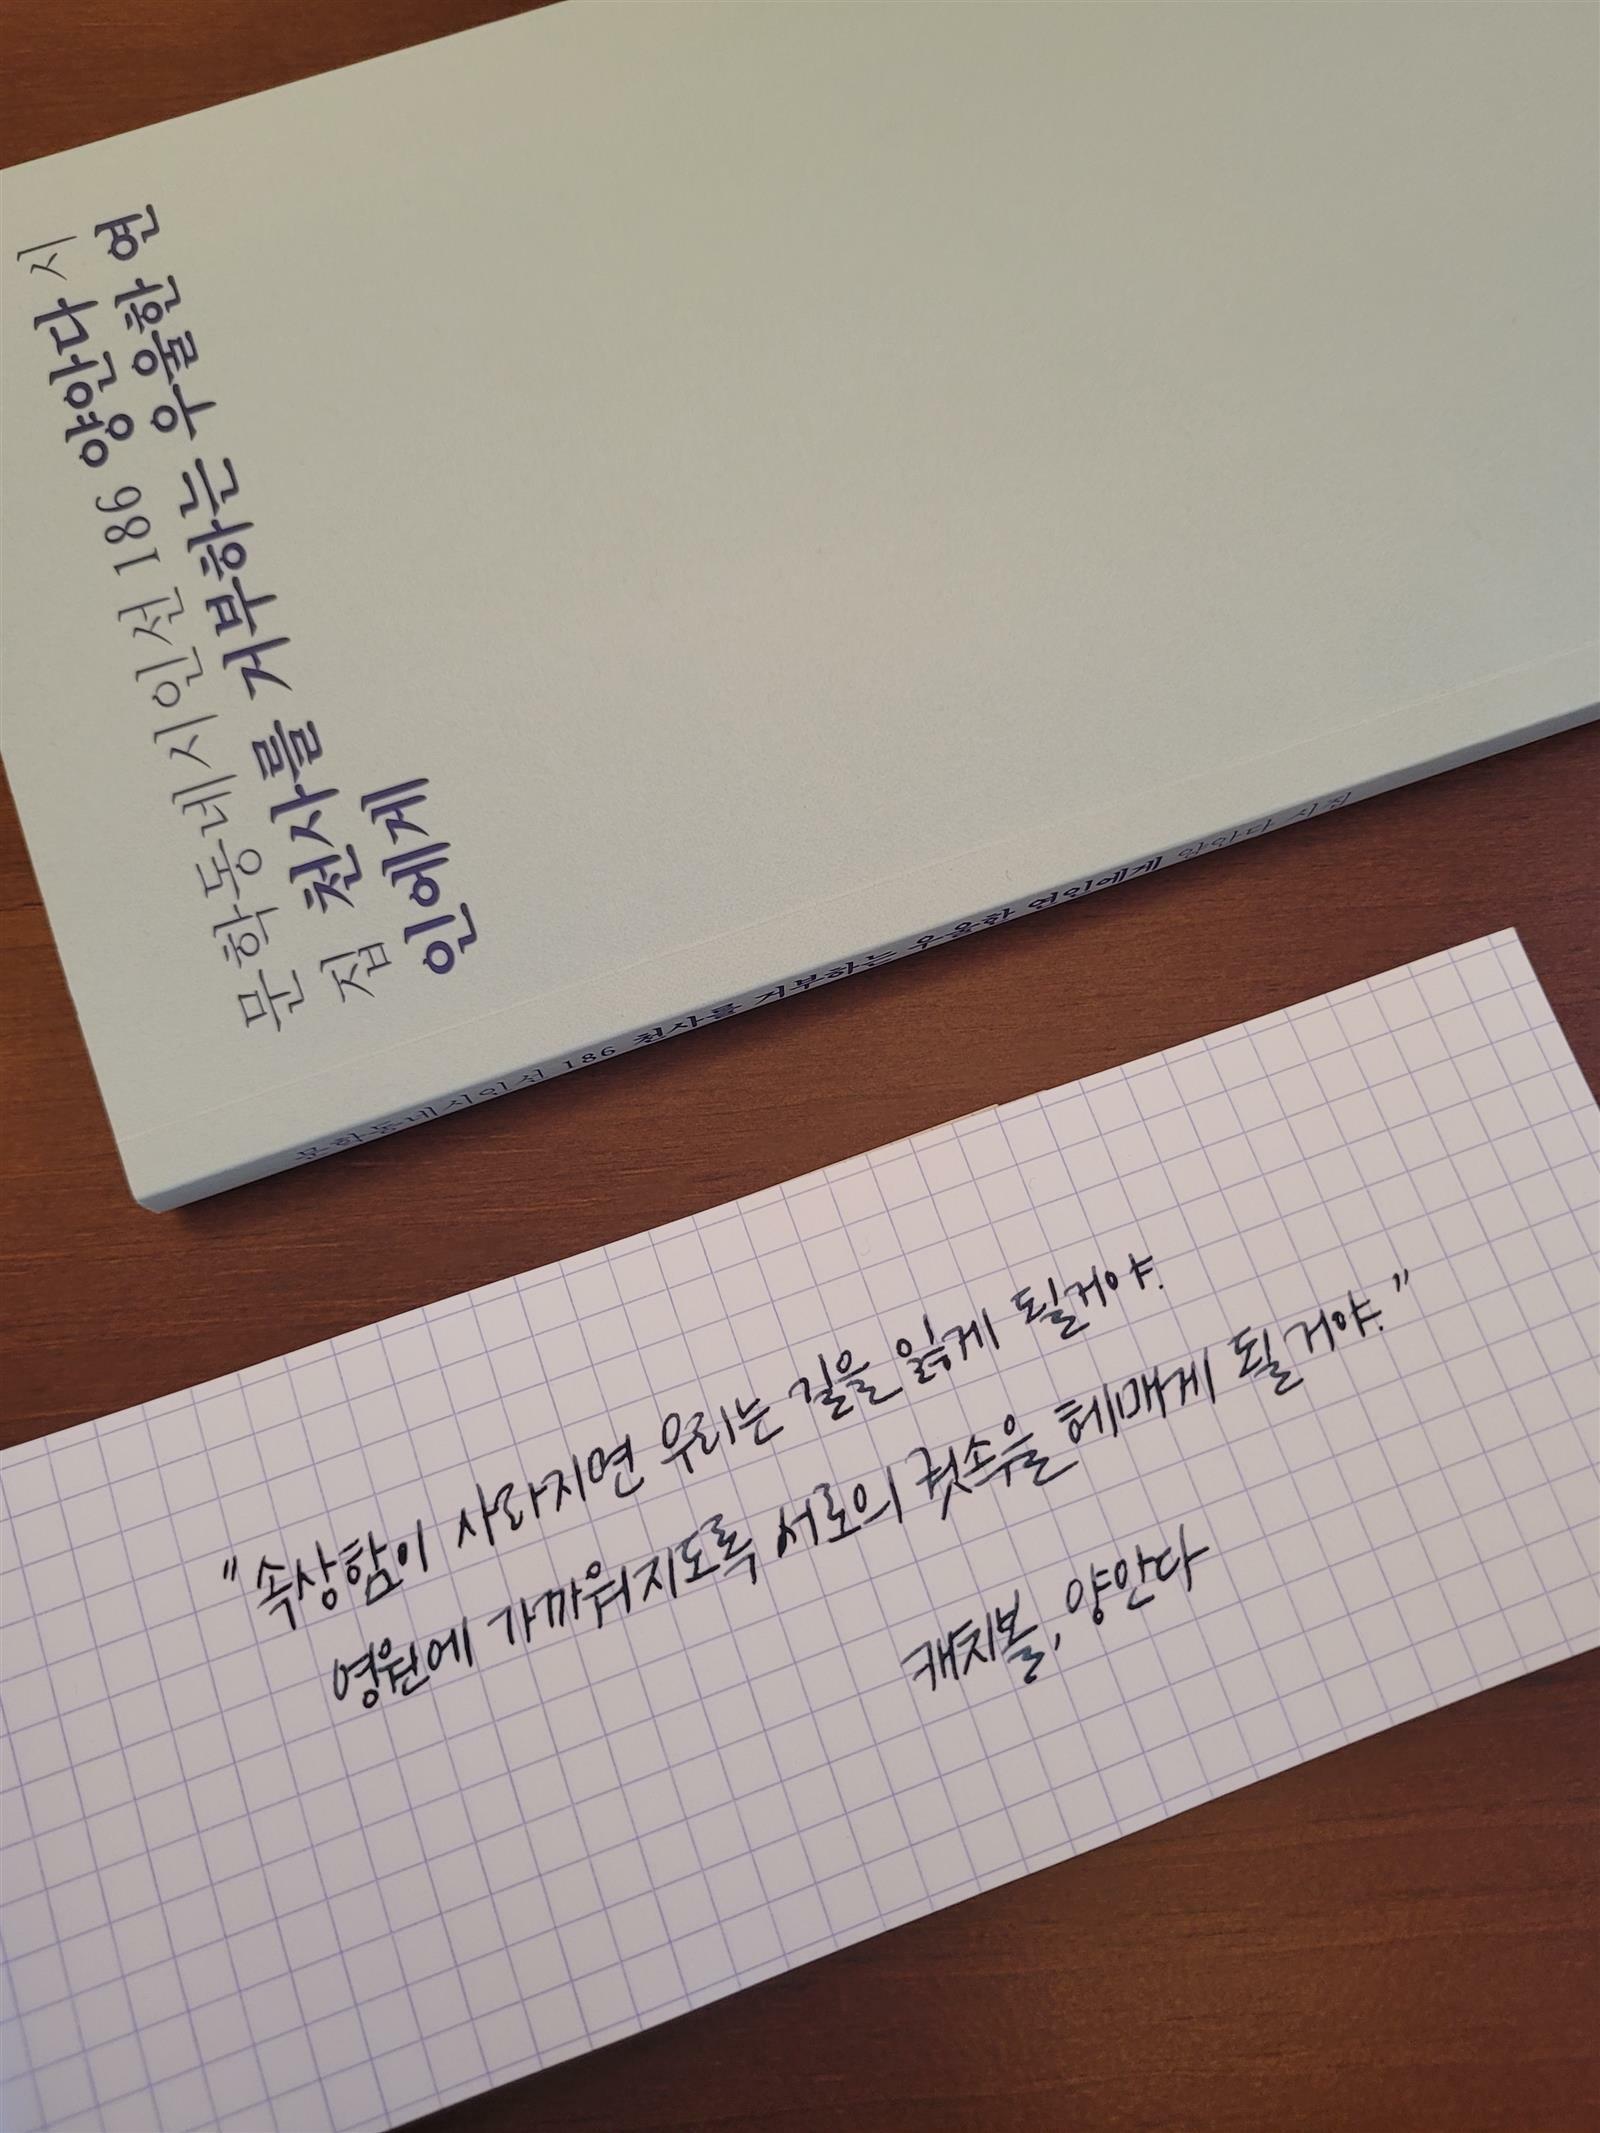 문학동네시인선 186 양안다 시
집 천사를 거부하는 우울한 연
인에게
문학동네시인선 186 천사를 거부하는 우울한 연인에게 양안다 시집
"속상함이 사라지면 우리는 길을 잃게 될거야.
영원에 가까워지도록 서로의 컷소울을 헤매게 될거야."
캐치볼, 양안다